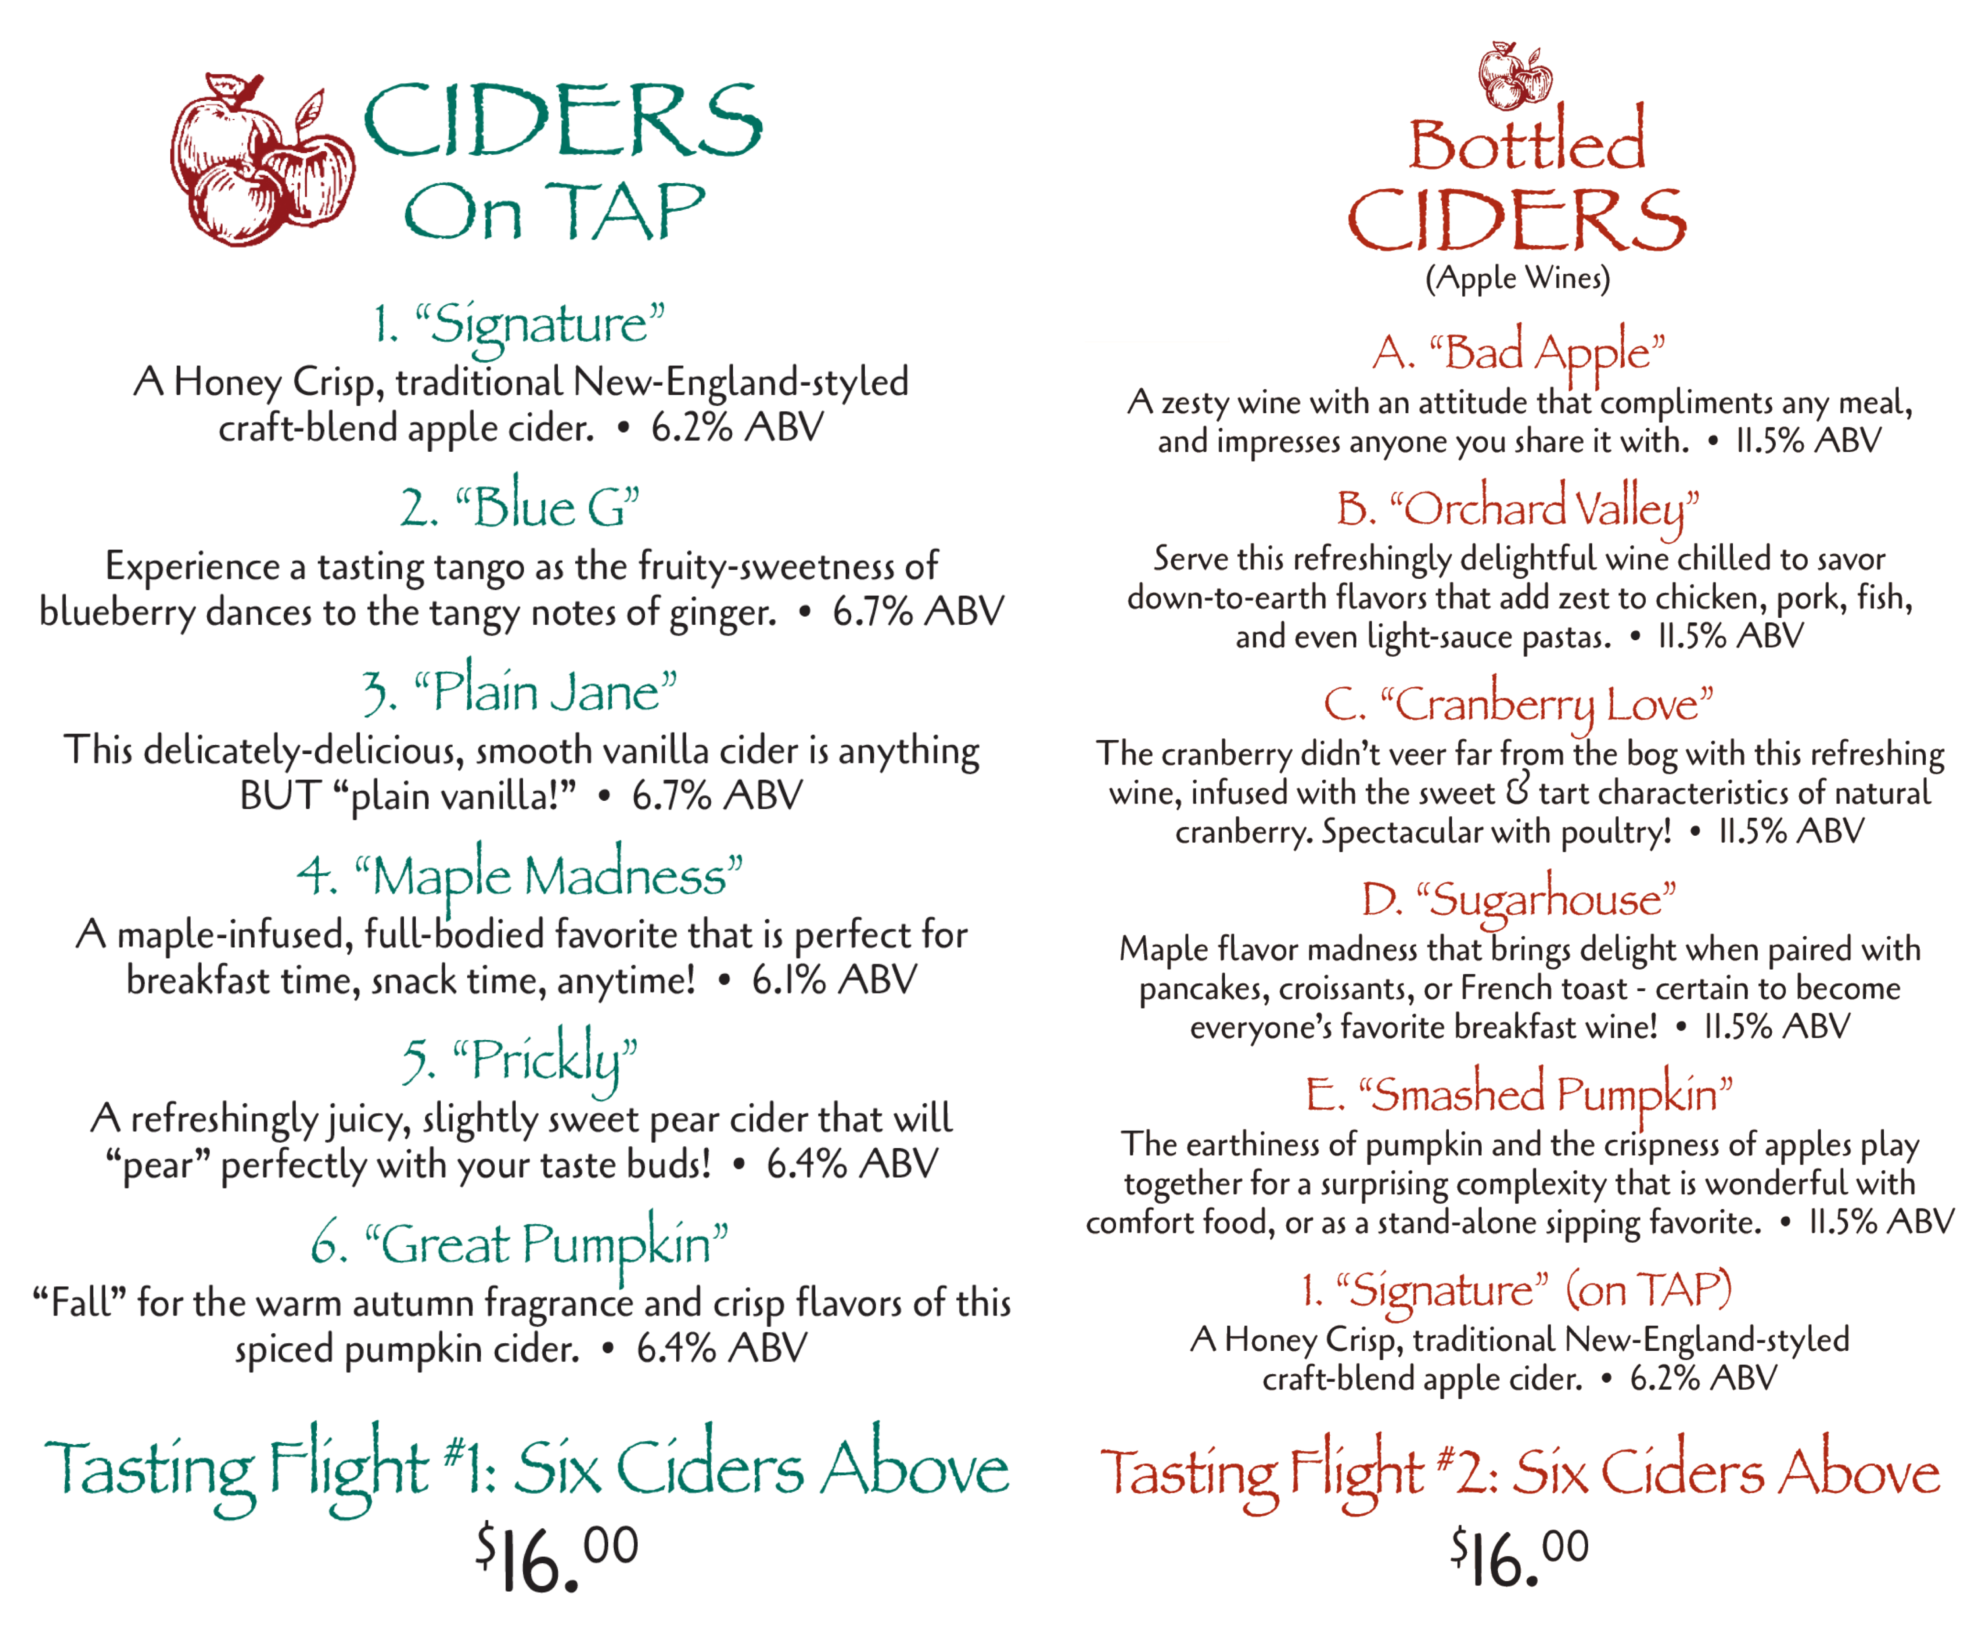 CIDERS
On TAP
1. “Signature”
A Honey Crisp, traditional New-England-styled
craft-blend apple cider. • 6.2% ABV
2. “Blue G”
Experience a tasting tango as the fruity-sweetness of
blueberry dances to the tangy notes of ginger. • 6.7% ABV
3. “Plain Jane”
This delicately-delicious, smooth vanilla cider is anything
BUT “plain vanilla!” • 6.7% ABV
4. “Maple Madness”
A maple-infused, full-bodied favorite that is perfect for
breakfast time, snack time, anytime! • 6.1% ABV
5. “Prickly”
A refreshingly juicy, slightly sweet pear cider that will
“pear” perfectly with your taste buds! • 6.4% ABV
6. “Great Pumpkin”
“Fall” for the warm autumn fragrance and crisp flavors of this
spiced pumpkin cider. • 6.4% ABV
Tasting Flight #1: Six Ciders Above
$16.00
Bottled
CIDERS
(Apple Wines)
A. “Bad Apple”
A zesty wine with an attitude that compliments any meal,
and impresses anyone you share it with. • 11.5% ABV
B. “Orchard Valley”
Serve this refreshingly delightful wine chilled to savor
down-to-earth flavors that add zest to chicken, pork, fish,
and even light-sauce pastas. • 11.5% ABV
C. “Cranberry Love”
The cranberry didn’t veer far from the bog with this refreshing
wine, infused with the sweet & tart characteristics of natural
cranberry. Spectacular with poultry! • 11.5% ABV
D. “Sugarhouse”
Maple flavor madness that brings delight when paired with
pancakes, croissants, or French toast - certain to become
everyone’s favorite breakfast wine! • 11.5% ABV
E. “Smashed Pumpkin”
The earthiness of pumpkin and the crispness of apples play
together for a surprising complexity that is wonderful with
comfort food, or as a stand-alone sipping favorite. • 11.5% ABV
1. “Signature” (on TAP)
A Honey Crisp, traditional New-England-styled
craft-blend apple cider. • 6.2% ABV
Tasting Flight #2: Six Ciders Above
$16.00